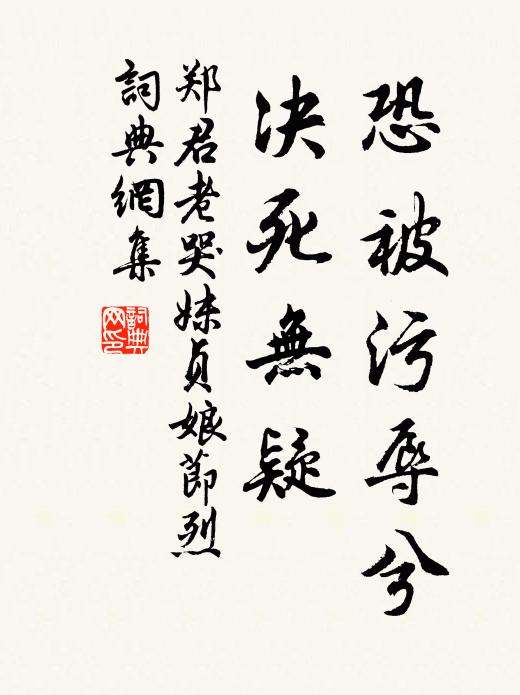 恐被污辱兮
决死無疑
郑君老哭妹贞娘節烈
詞典網集
詞典网印